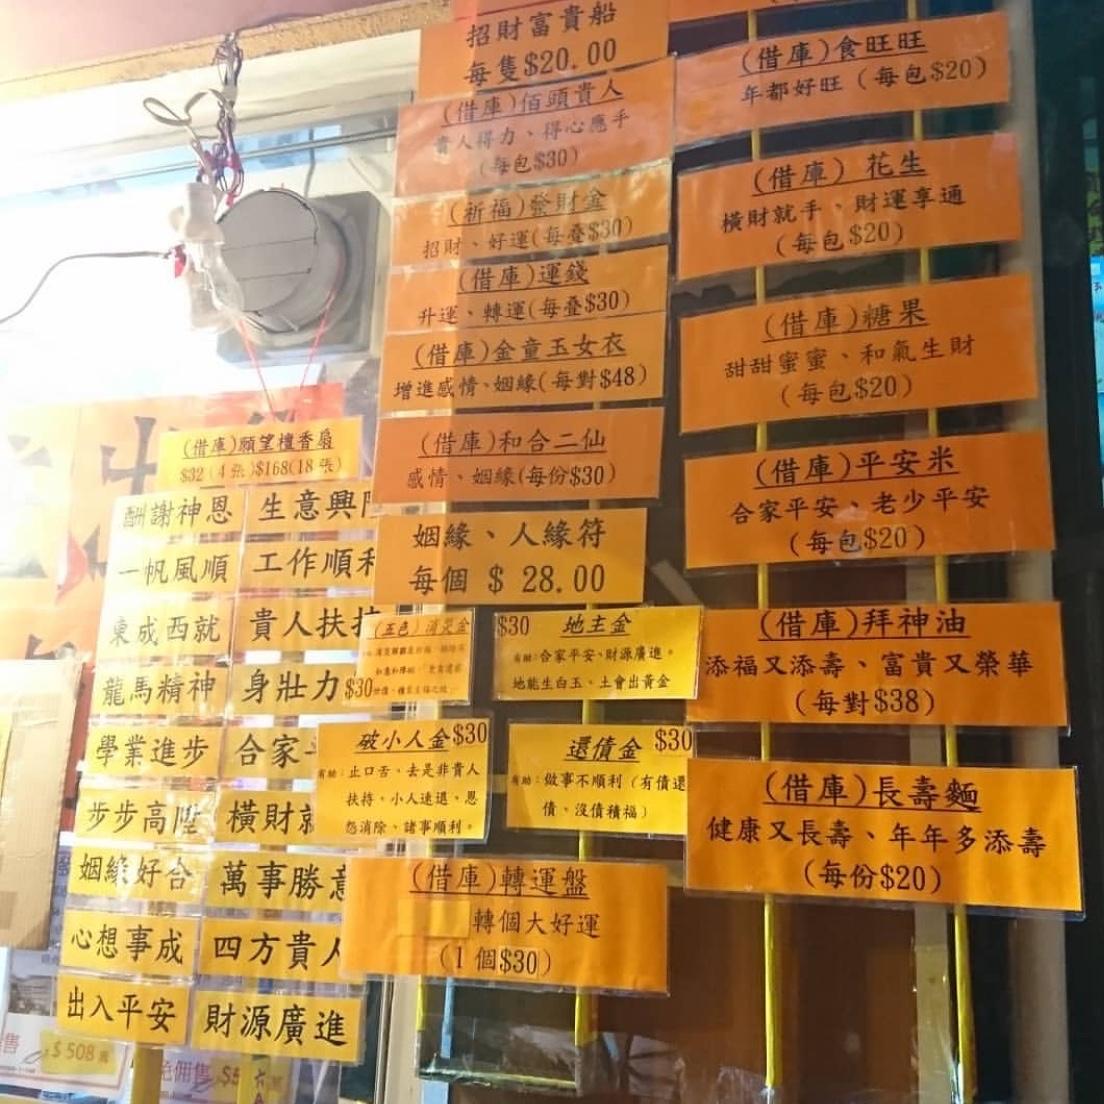 招財富貴船
每隻$20.00
(借庫)佰頭貴人
貴人得力、得心應手
(每包$30)
(祈福)發財金
招財、好運(每叠$30)
(借庫)運錢
升運、轉運(每叠$30)
(借庫)金童玉女衣
增進感情、姻緣(每對$48)
(借庫)和合二仙
感情、姻緣(每份$30)
姻緣、人緣符
每個 $ 28.00
(借庫)食旺旺
年都好旺 (每包$20)
(借庫) 花生
橫財就手、財運享通
(每包$20)
(借庫)糖果
甜甜蜜蜜、和氣生財
(每包$20)
(借庫)平安米
合家平安、老少平安
(每包$20)
(借庫)拜神油
添福又添壽、富貴又榮華
(每對$38)
(借庫)長壽麵
健康又長壽、年年多添壽
(每份$20)
(借庫)願望檀香扇
$32 (4張)$168(18張)
酬謝神恩
生意興
一帆風順
工作順利
東成西就
貴人扶持
龍馬精神
身壯力
學業進步
合家
步步高陞
橫財就
姻緣好合
萬事勝意
心想事成
四方貴人
出入平安
財源廣進
(五色)消災金
$30
$30 地主金
有助:合家平安、財源廣進。
地能生白玉、土會出黃金
破小人金$30
有助:止口舌、去是非貴人
扶持、小人速退、恩
怨消除、諸事順利。
還債金 $30
有助:做事不順利(有債還
債、沒債積福)
(借庫)轉運盤
轉個大好運
(1個$30)
售
$508萬